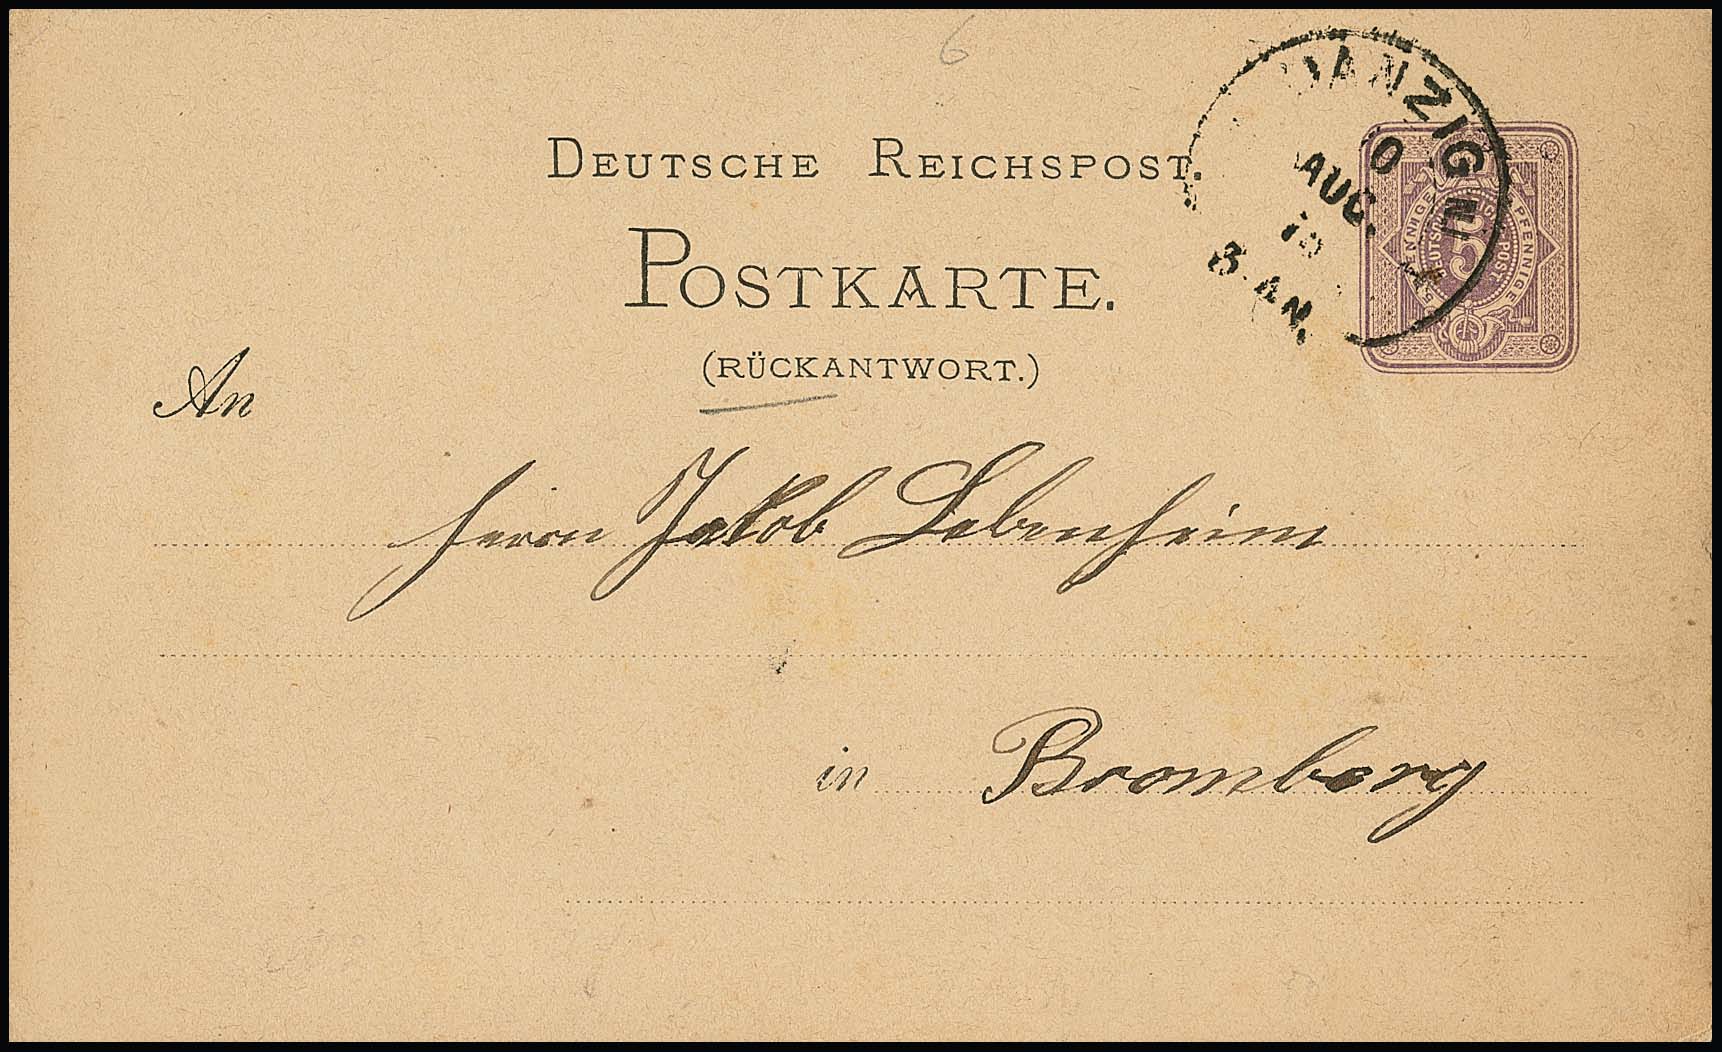 6
DEUTSCHE REICHSPOST.
POSTKARTE.
(RÜCKANTWORT.)
DANZIG
AUG.
AN.
5
PFENNIGE
PFENNIGE
DEUTSCHE REICHS-POST
An
Herrn Jakob Lebenheim
in Bromberg